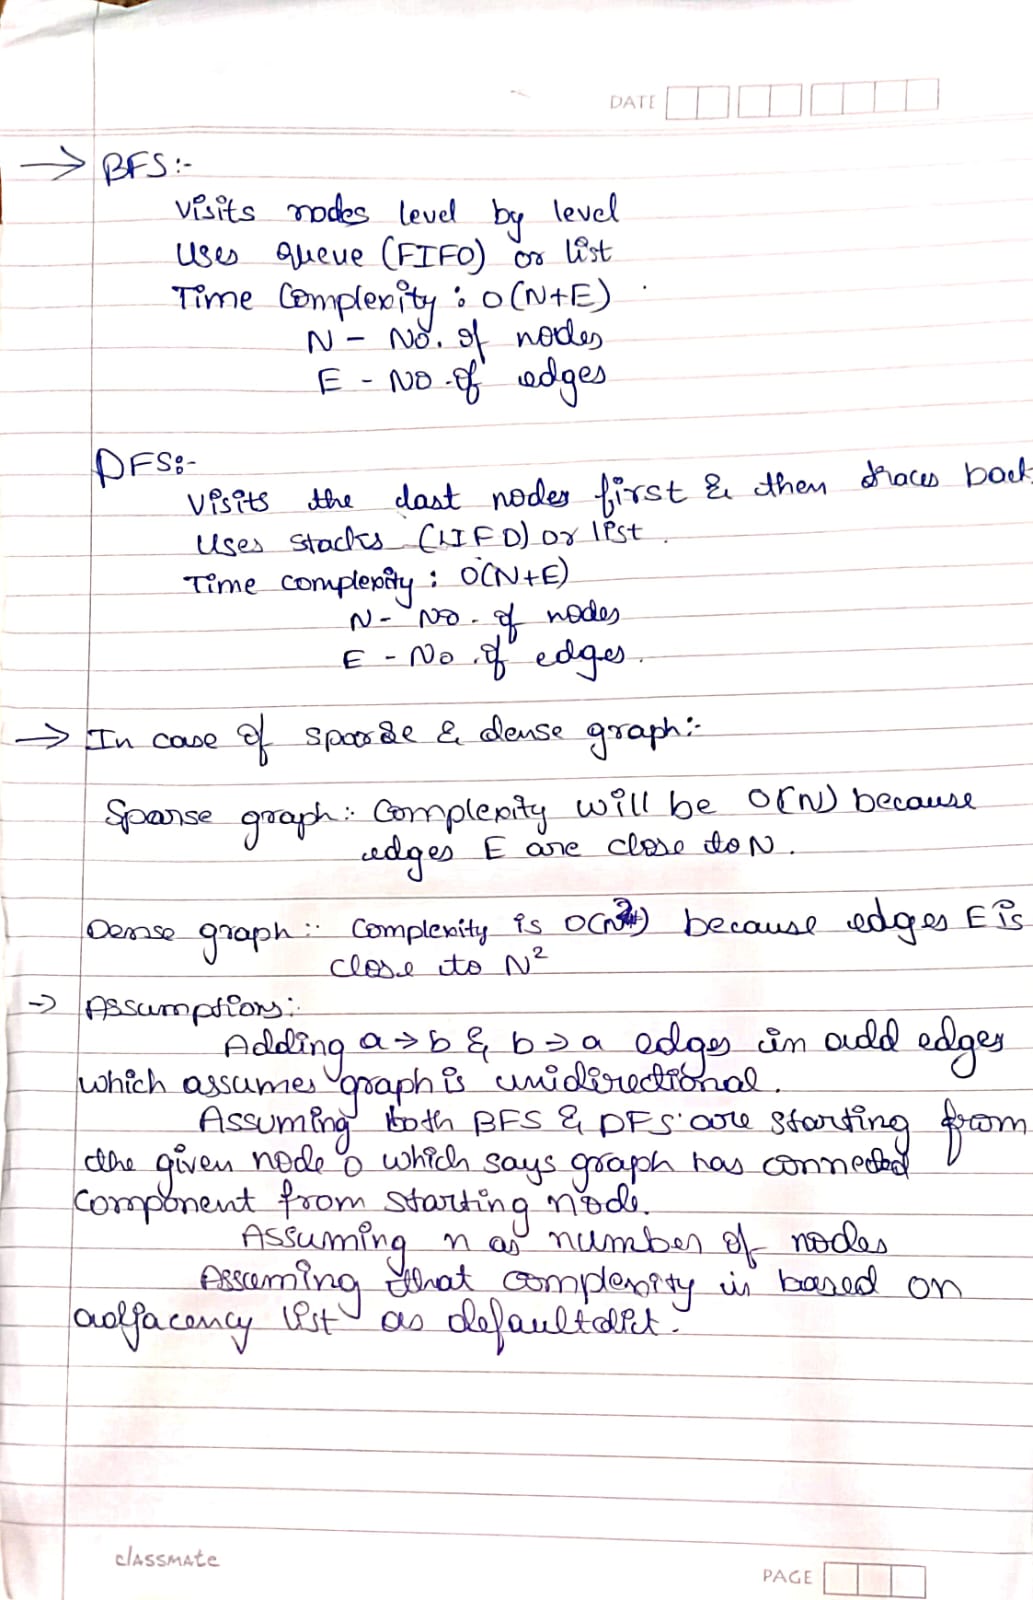 DATE
→ BFS:-
Visits nodes level by level
Uses Queue (FIFO) or list
Time Complexity : O(N+E)
N - No. of nodes
E - No. of edges
DFS:-
Visits the last nodes first & then traces back
Uses stacks (LIFO) or list.
Time complexity : O(N+E)
N - No. of nodes
E - No. of edges.
→ In case of sparse & dense graph:-
Sparse graph:- Complexity will be O(N) because
edges E are close to N.
Dense graph:- Complexity is O(N²) because edges E is
close to N²
→ Assumptions:-
Adding a→b & b→a edges in add edges
which assumes graph is unidirectional.
Assuming both BFS & DFS are starting from
the given node 0 which says graph has connected
component from starting node.
Assuming n as number of nodes
Assuming that complexity is based on
adjacency list as defaultdict.
classmate
PAGE